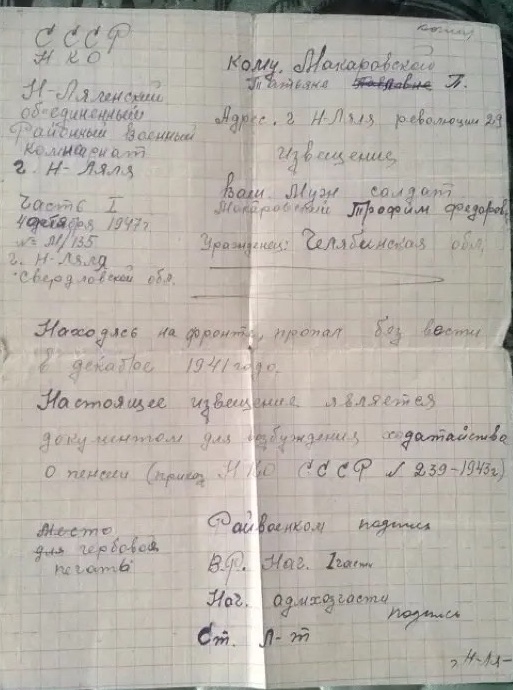 кому
СССР
НКО
Н-Лялинский
объединенный
Районный военный
комиссариат
г. Н-Ляля
Часть I
1947г
№ М/135
г. Н-Ляля
Свердловской обл.
Кому. Макаровской
Татьяне Павловне П.
Адрес. г Н-Ляля революции 29
Извещение
Ваш. Муж солдат
Макаровский Трофим Федоров
Уроженец: Челябинская обл.
Находясь на фронте, пропал без вести
в декабре 1941 года.
Настоящее извещение является
документом для возбуждения ходатайства
о пенсии (приказ НКО СССР № 239-1943г)
Место
для гербовой
печати
Райвоенком подпись
В.Р. Нач. I части
Нач. админхозчасти
подпись
Ст. Л-т
г Н-Ля-